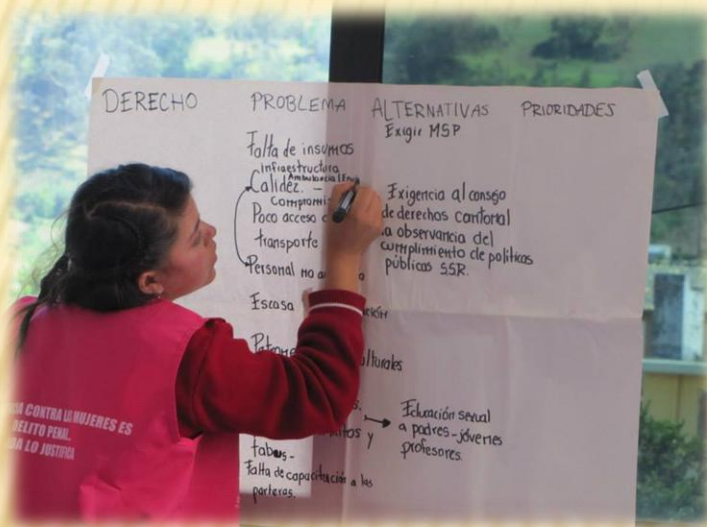 DERECHO
PROBLEMA
ALTERNATIVAS
PRIORIDADES
Falta de insumos
infraestructura
Calidez. - Ambulancia
Poco acceso
transporte
Personal no
Escasa
culturales
y
tabus-
Falta de capacitación a las
parteras.
Exigir MSP
Exigencia al consejo
de derechos cantonal
la observancia del
cumplimiento de políticas
públicas SSR.
Educación sexual
a padres-jóvenes
profesores.
CONTRA LAS MUJERES ES
DELITO PENAL.
LO JUSTIFICA